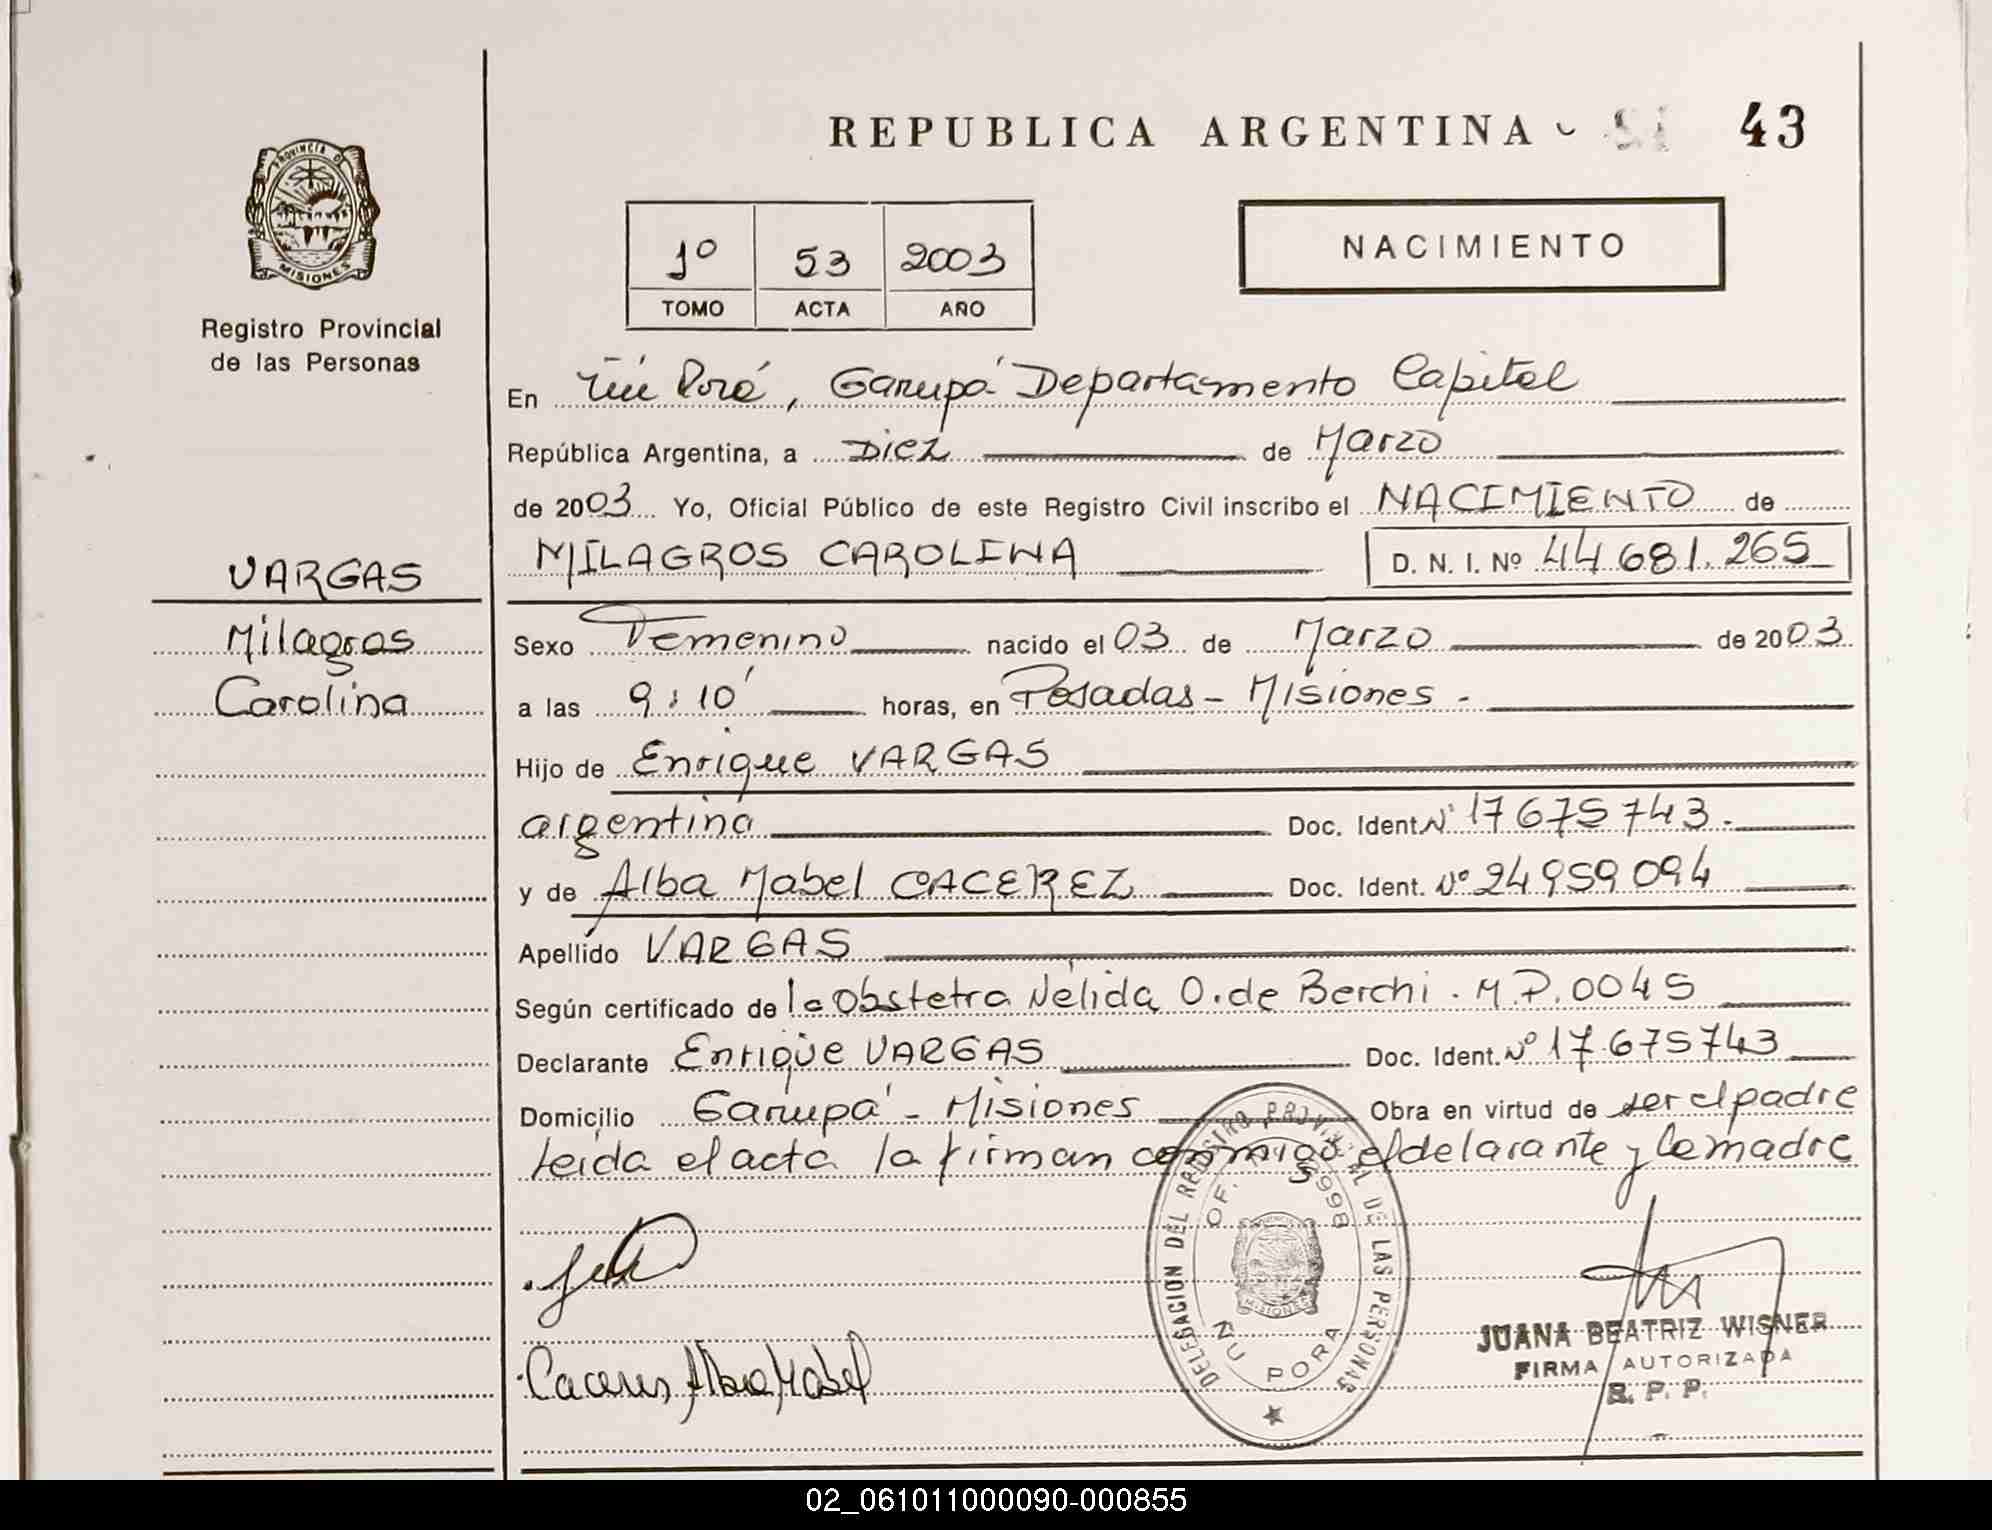 REPUBLICA ARGENTINA 43
PROVINCIA D
MISIONES
Registro Provincial
de las Personas
1º 53 2003
TOMO ACTA AÑO
NACIMIENTO
En Ñú Porá, Garupá Departamento Capital
República Argentina, a Diez de Marzo
de 2003 Yo, Oficial Público de este Registro Civil inscribo el NACIMIENTO de
MILAGROS CAROLINA D. N. I. Nº 44 681.265
VARGAS
Milagros
Carolina
Sexo Femenino nacido el 03 de Marzo de 2003
a las 9:10' horas, en Posadas - Misiones -
Hijo de Enrique VARGAS
argentina Doc. Ident. Nº 17 675 743.
y de Alba Mabel CACEREZ Doc. Ident. Nº 24 959 094
Apellido VARGAS
Según certificado de la Obstetra Nélida O. de Berchi. M.P. 0045
Declarante Enrique VARGAS Doc. Ident. Nº 17.675743
Domicilio Garupá - Misiones Obra en virtud de ser el padre
leída el acta la firman conmigo el delarante y la madre
DELEGACION DEL REGISTRO PROVINCIAL DE LAS PERSONAS
OF. 5998
MISIONES
ÑU PORA
Caceres Alba Mabel
JUANA BEATRIZ WISNER
FIRMA AUTORIZADA
R. P. P.
02_061011000090-000855